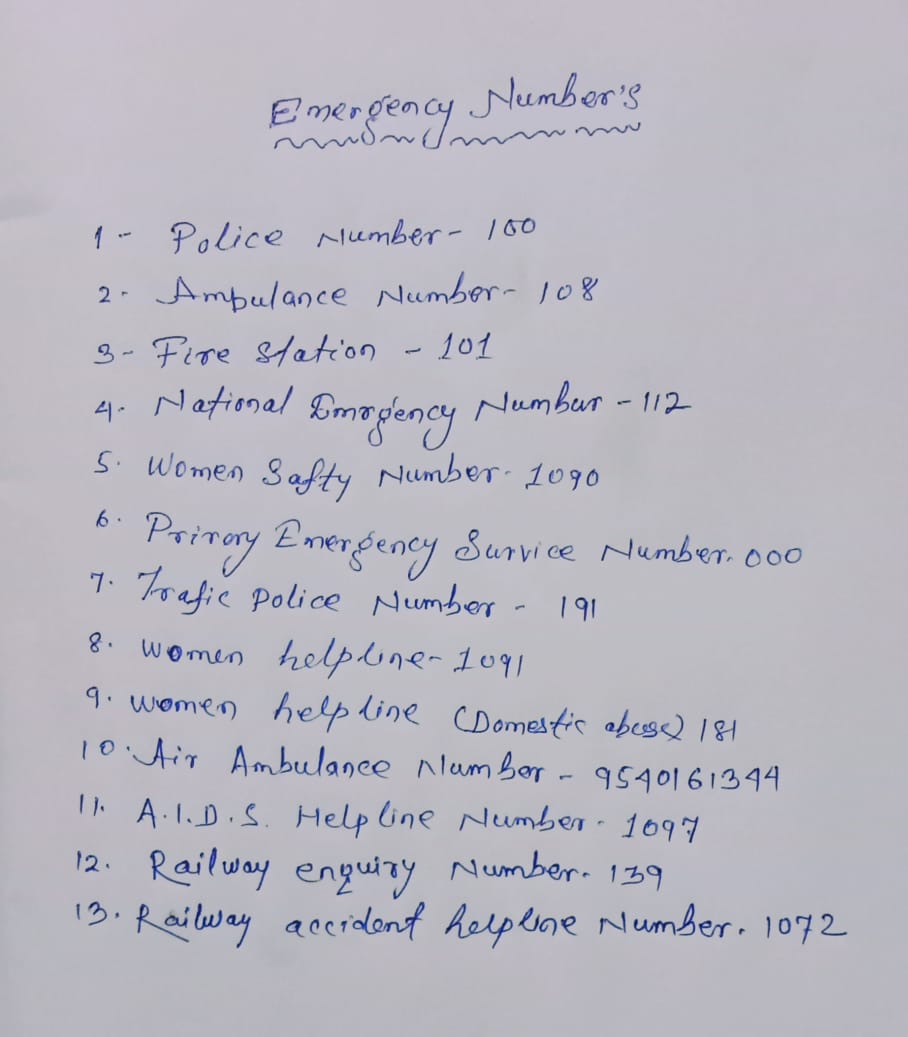 Emergency Number's
1- Police Number- 100
2- Ambulance Number- 108
3- Fire Station - 101
4. National Emergency Number - 112
5. Women Safty Number. 1090
6. Prirary Emergency Survice Number. 000
7. Trafic Police Number - 191
8. Women helpline- 1091
9. women help line (Domestic abuse) 181
10. Air Ambulance Number - 9540161344
11. A.I.D.S. Help line Number- 1097
12. Railway enquiry Number. 139
13. Railway accident helpline Number. 1072